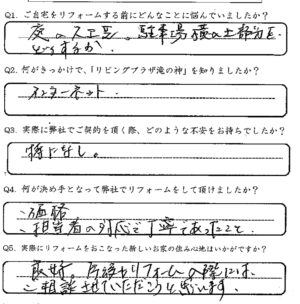 Q1. ご自宅をリフォームする前にどんなことに悩んでいましたか？
庭の工事。駐車場横の土部分を
どうするか。
Q2. 何がきっかけで、「リビングプラザ滝の神」を知りましたか？
インターネット.
Q3. 実際に弊社でご契約を頂く際、どのような不安をお持ちでしたか？
特になし。
Q4. 何が決め手となって弊社でリフォームをして頂けましたか？
・価格
・担当者の対応で丁寧であったこと.
Q5. 実際にリフォームをおこなった新しいお家の住み心地はいかがですか？
良好。今後もリフォームの際には、
ご相談させていただこうと思います